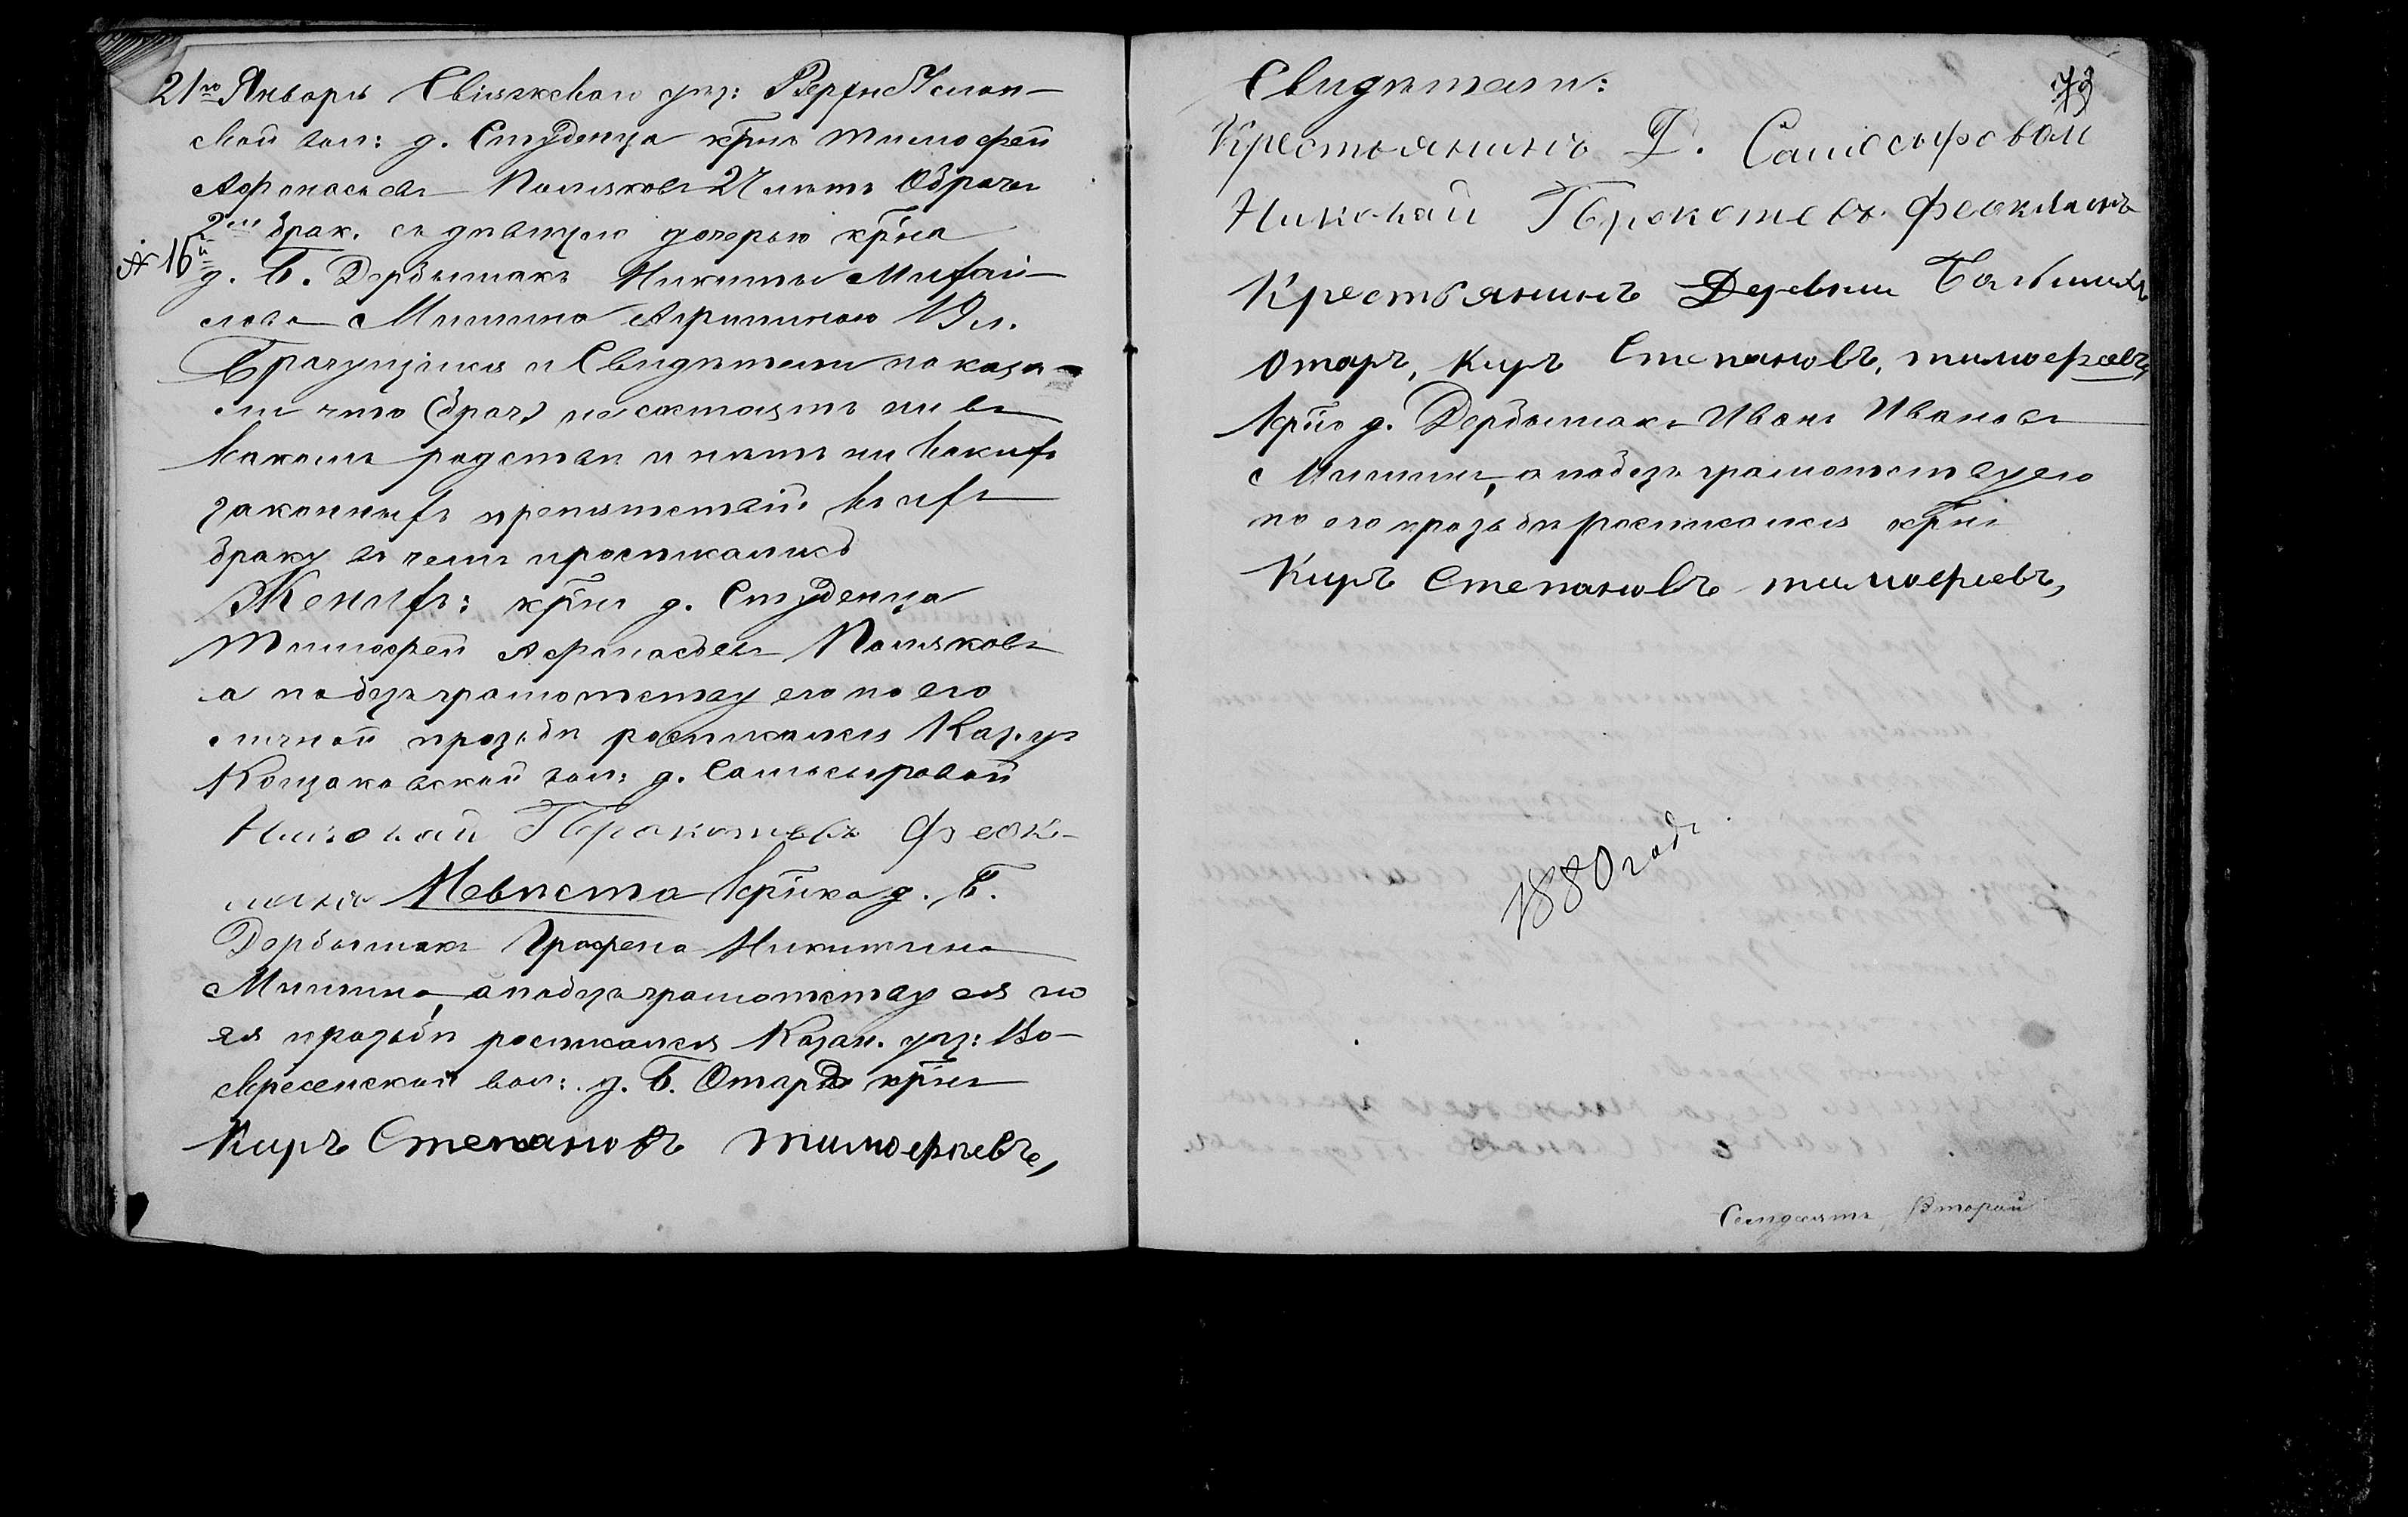 21го Января Свіяжскаго уѣз: Верхне Услон-
ской вол: д. Студенца кр̃нъ Тимофей
Афонасьевъ Поляковъ 27 лѣтъ Обрачен
2мъ брак. съ дѣвицею дочерью кр̃на
№ 16й
д. Б. Дербышакъ Никиты Михай-
лова Мишина Агриппиною 19 л.
Брачущіися и Свидѣтели показа-
ли что (брач) не состоятъ ни въ
какомъ родствѣ и нѣтъ ни какихъ
законныхъ препятствій къ ихъ
браку въ чемъ и росписались
Женихъ: кр̃нъ д. Студенца
Тимофей Афонасьевъ Поляковъ
а по безграмотству его по его
личной прозьбѣ росписался Каз. уѣ
Кощаковской вол: д. Самосыровой
Николай Прокопьевъ Феок-
Невѣста кр̃нка д. Б.
Дербышакъ Графена Никитина
Мишина, а по безграмотству ея по
ея прозьбѣ росписался Казан. уѣз: Во-
скресенской вол: д. Б. Отаръ кр̃нъ
Киръ Степановъ тимофѣевъ,
73
Свидѣтели:
Крестьянинъ Д. Самосыровой
Николай Прокопьевъ Феоклинъ
Крестьянинъ Деревни Большихъ
Отаръ, Киръ Степановъ, тимофеевъ,
кр̃нъ д. Дербышакъ Иванъ Ивановъ
Мишинъ, а по безграмотству его
по его прозьбѣ росписался кр̃нъ
Киръ Степановъ тимофиевъ,
1880 года
Семдесятъ Второй